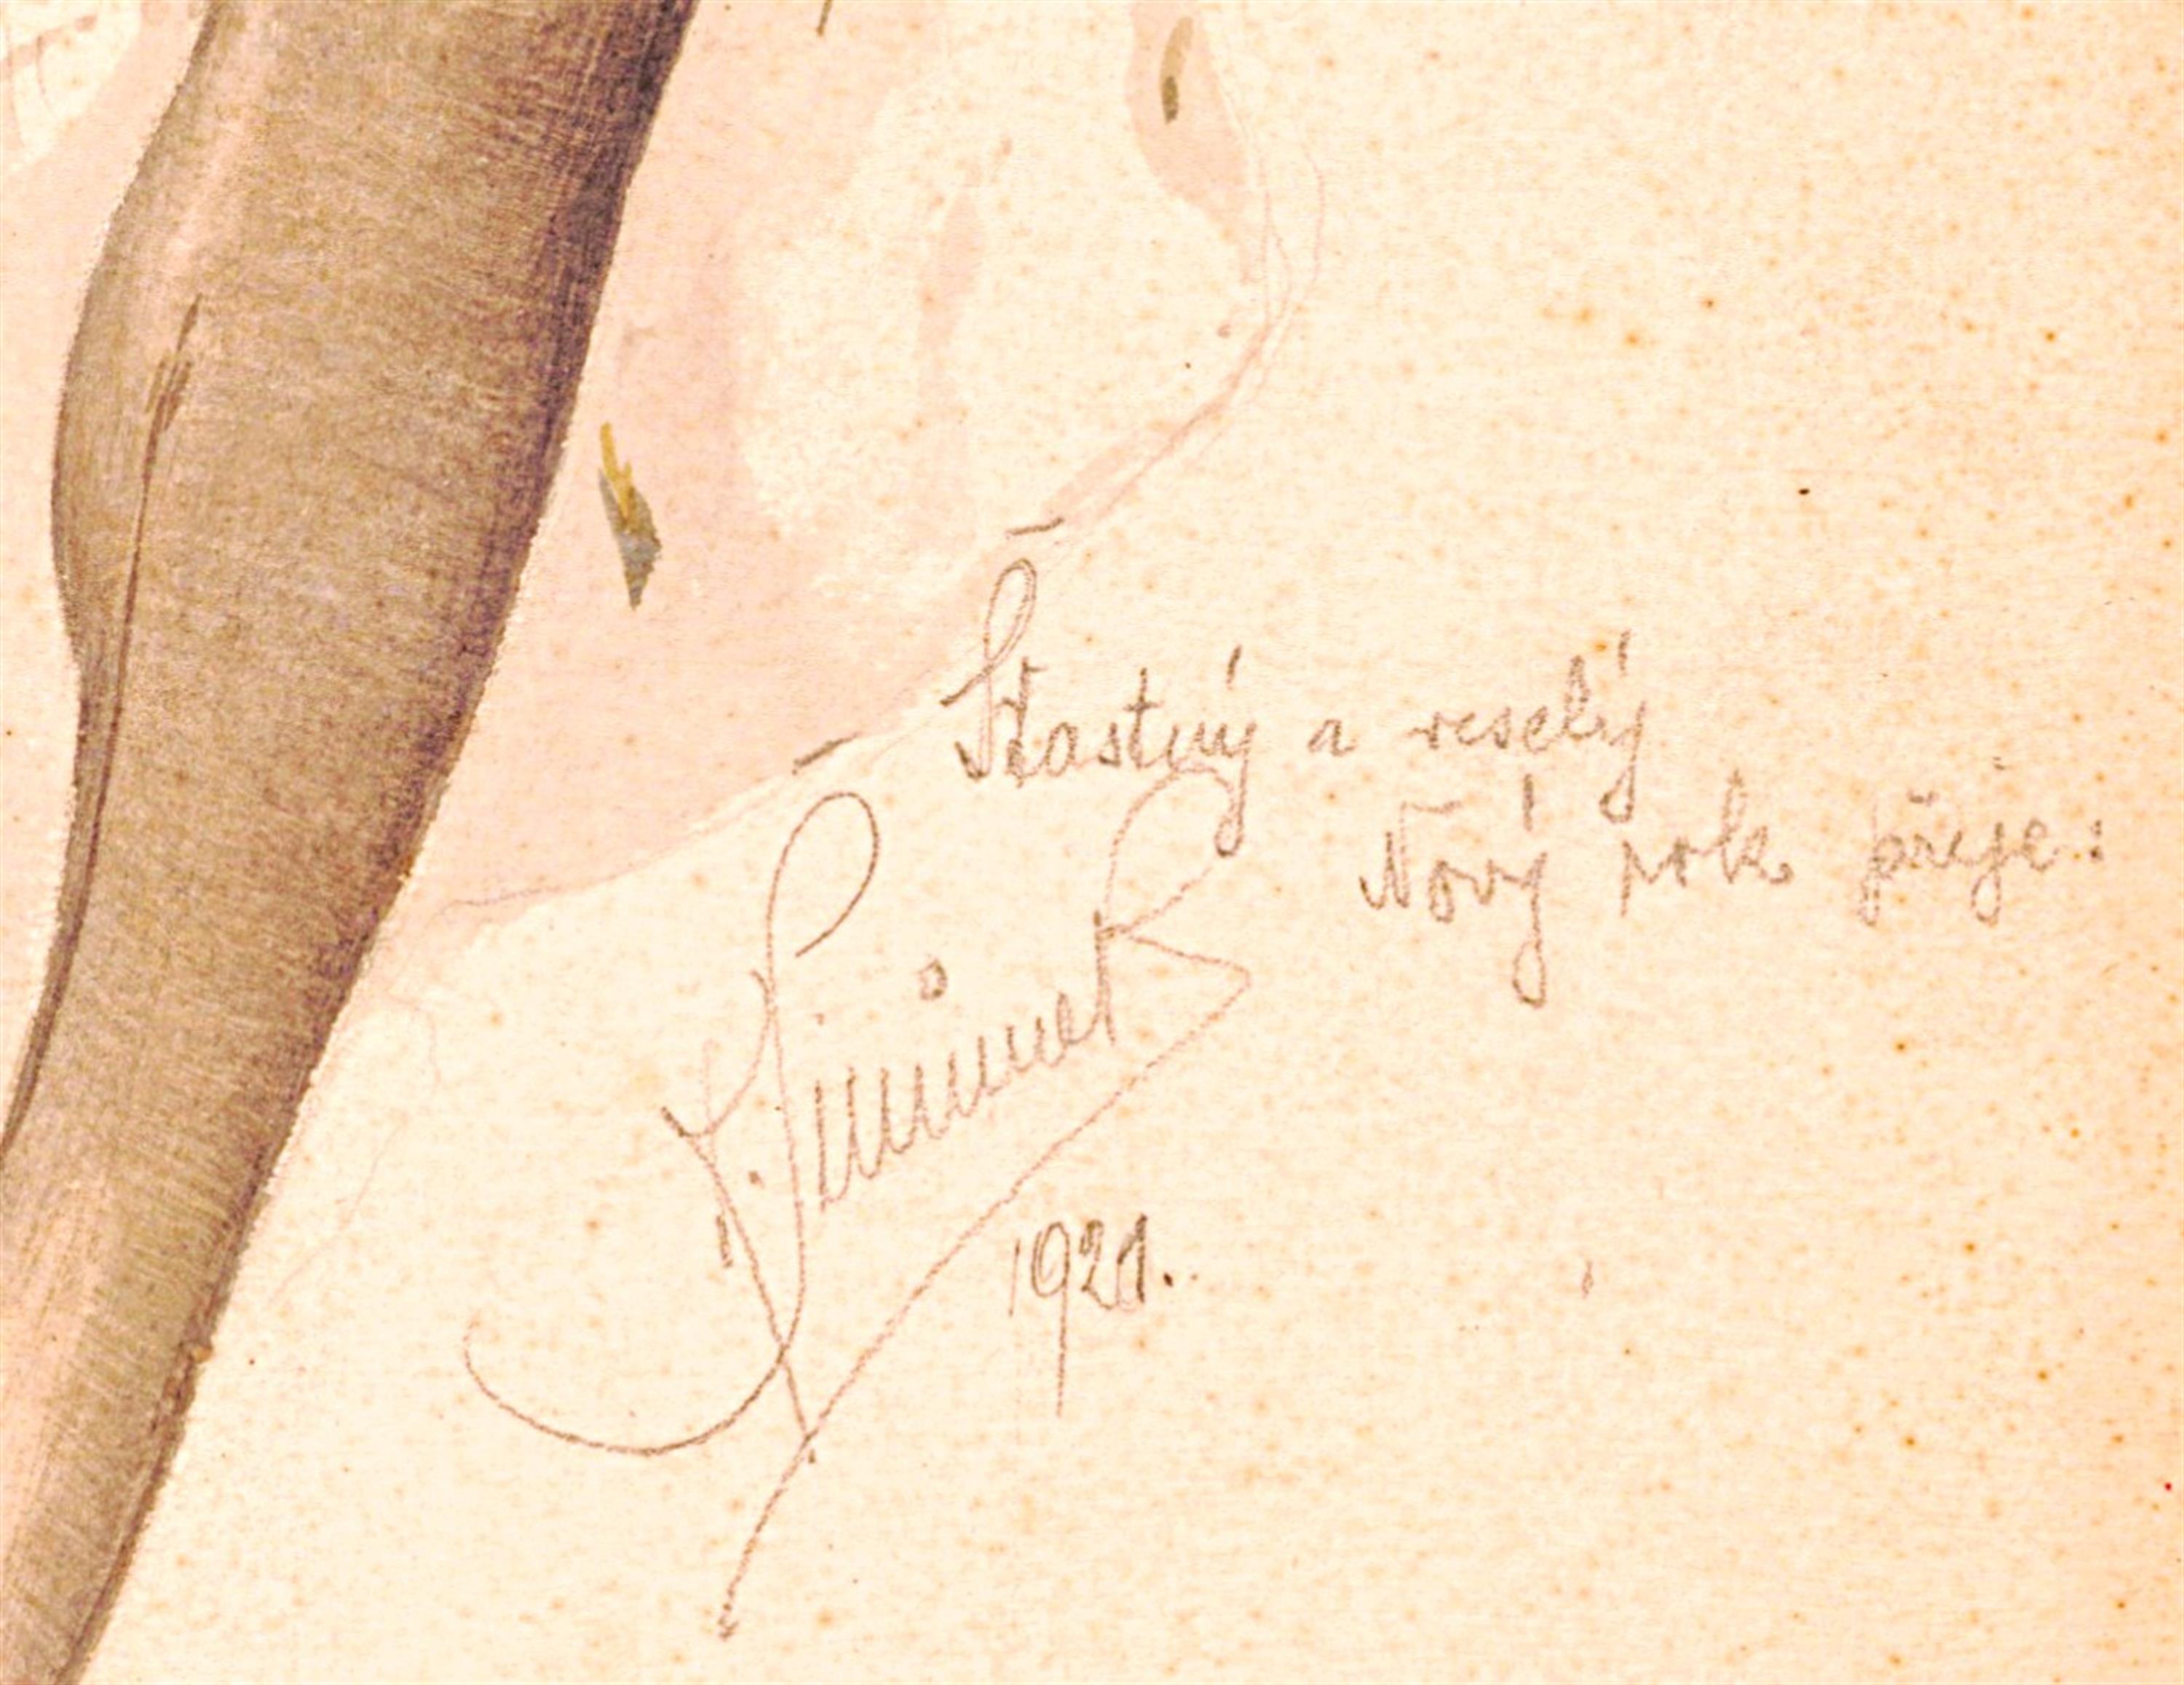 Šťastný a veselý
Nový rok přeje:
Šimůnek
1921.